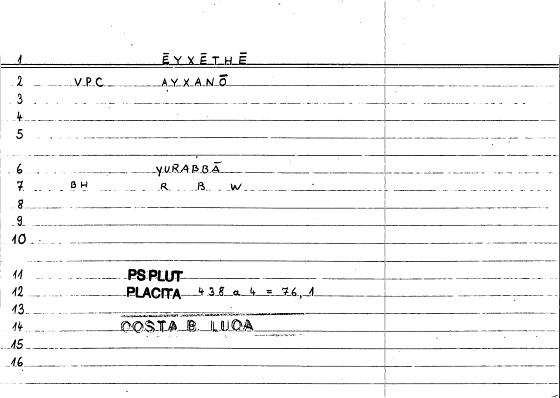 1 ĒYXĒTHĒ
2 VPC AYXANŌ
3
4
5
6 yURABBĀ
7 BH R B W
8
9
10
11 PS PLUT
12 PLACITA 438 a 4 = 76,1
13
14 COSTA B LUQA
15
16